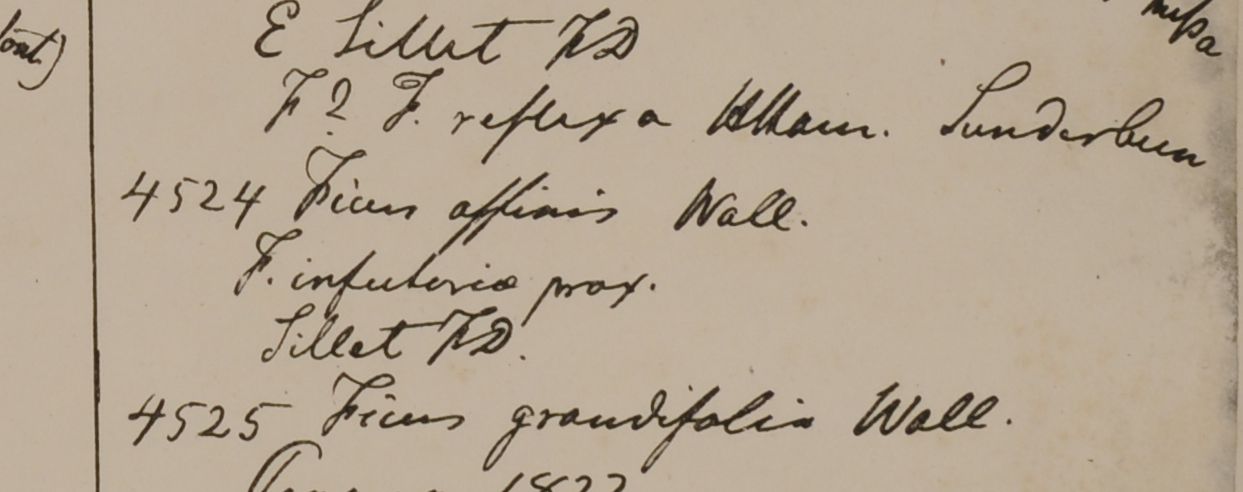 E Sillet FD
F? F. reflexa HHam. Sunderbun
4524 Ficus affinis Wall.
F. infectoriæ prox.
Sillet FD.
4525 Ficus grandifolia Wall.
1822